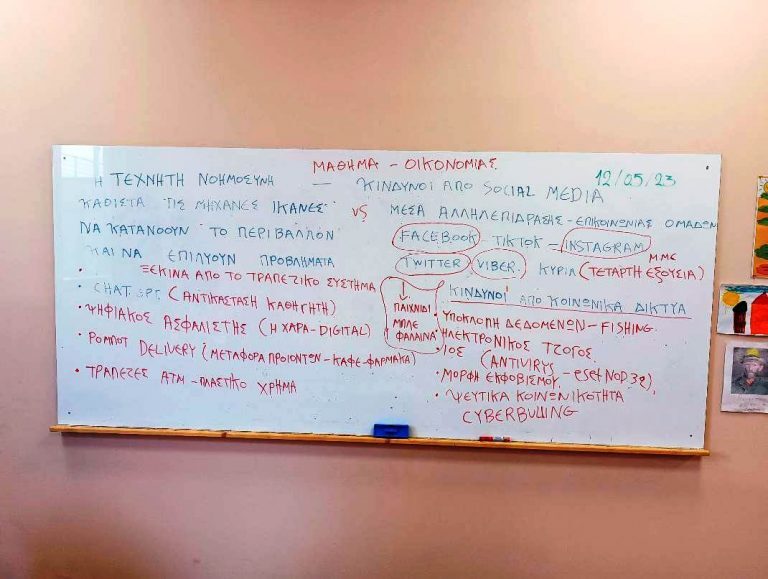 ΜΑΘΗΜΑ - ΟΙΚΟΝΟΜΙΑΣ
12/05/23
Η ΤΕΧΝΗΤΗ ΝΟΗΜΟΣΥΝΗ
ΚΑΘΙΣΤΑ ΤΙΣ ΜΗΧΑΝΕΣ ΙΚΑΝΕΣ
ΝΑ ΚΑΤΑΝΟΟΥΝ ΤΟ ΠΕΡΙΒΑΛΛΟΝ
ΚΑΙ ΝΑ ΕΠΙΛΥΟΥΝ ΠΡΟΒΛΗΜΑΤΑ
• ΞΕΚΙΝΑ ΑΠΟ ΤΟ ΤΡΑΠΕΖΙΚΟ ΣΥΣΤΗΜΑ
• CHAT. GPT (ΑΝΤΙΚΑΣΤΑΣΗ ΚΑΘΗΓΗΤΗ)
• ΨΗΦΙΑΚΟΣ ΑΣΦΑΛΙΣΤΗΣ (Η ΧΑΡΑ-DIGITAL)
• ΡΟΜΠΟΤ DELIVERY (ΜΕΤΑΦΟΡΑ ΠΡΟΙΟΝΤΩΝ-ΚΑΦΕ-ΦΑΡΜΑΚΑ)
• ΤΡΑΠΕΖΕΣ ATM - ΠΛΑΣΤΙΚΟ ΧΡΗΜΑ
VS
— ΚΙΝΔΥΝΟΙ ΑΠΟ SOCIAL MEDIA
ΜΕΣΑ ΑΛΛΗΛΕΠΙΔΡΑΣΗΣ - ΕΠΙΚΟΙΝΩΝΙΑΣ ΟΜΑΔΩΝ
FACEBOOK - TIKTOK - INSTAGRAM
ΜΜΕ
TWITTER VIBER. ΚΥΡΙΑ (ΤΕΤΑΡΤΗ ΕΞΟΥΣΙΑ)
↓
ΠΑΙΧΝΙΔΙ
ΜΠΛΕ
ΦΑΛΑΙΝΑ
ΚΙΝΔΥΝΟΙ ΑΠΟ ΚΟΙΝΩΝΙΚΑ ΔΙΚΤΥΑ
• ΥΠΟΚΛΟΠΗ ΔΕΔΟΜΕΝΩΝ - FISHING
• ΗΛΕΚΤΡΟΝΙΚΟΣ ΤΖΟΓΟΣ
• ΙΟΣ (ANTIVIRYS
• ΜΟΡΦΗ ΕΚΦΟΒΙΣΜΟΥ. - eset NOD 32)
• ΨΕΥΤΙΚΑ ΚΟΙΝΩΝΙΚΟΤΗΤΑ
CYBERBULLING